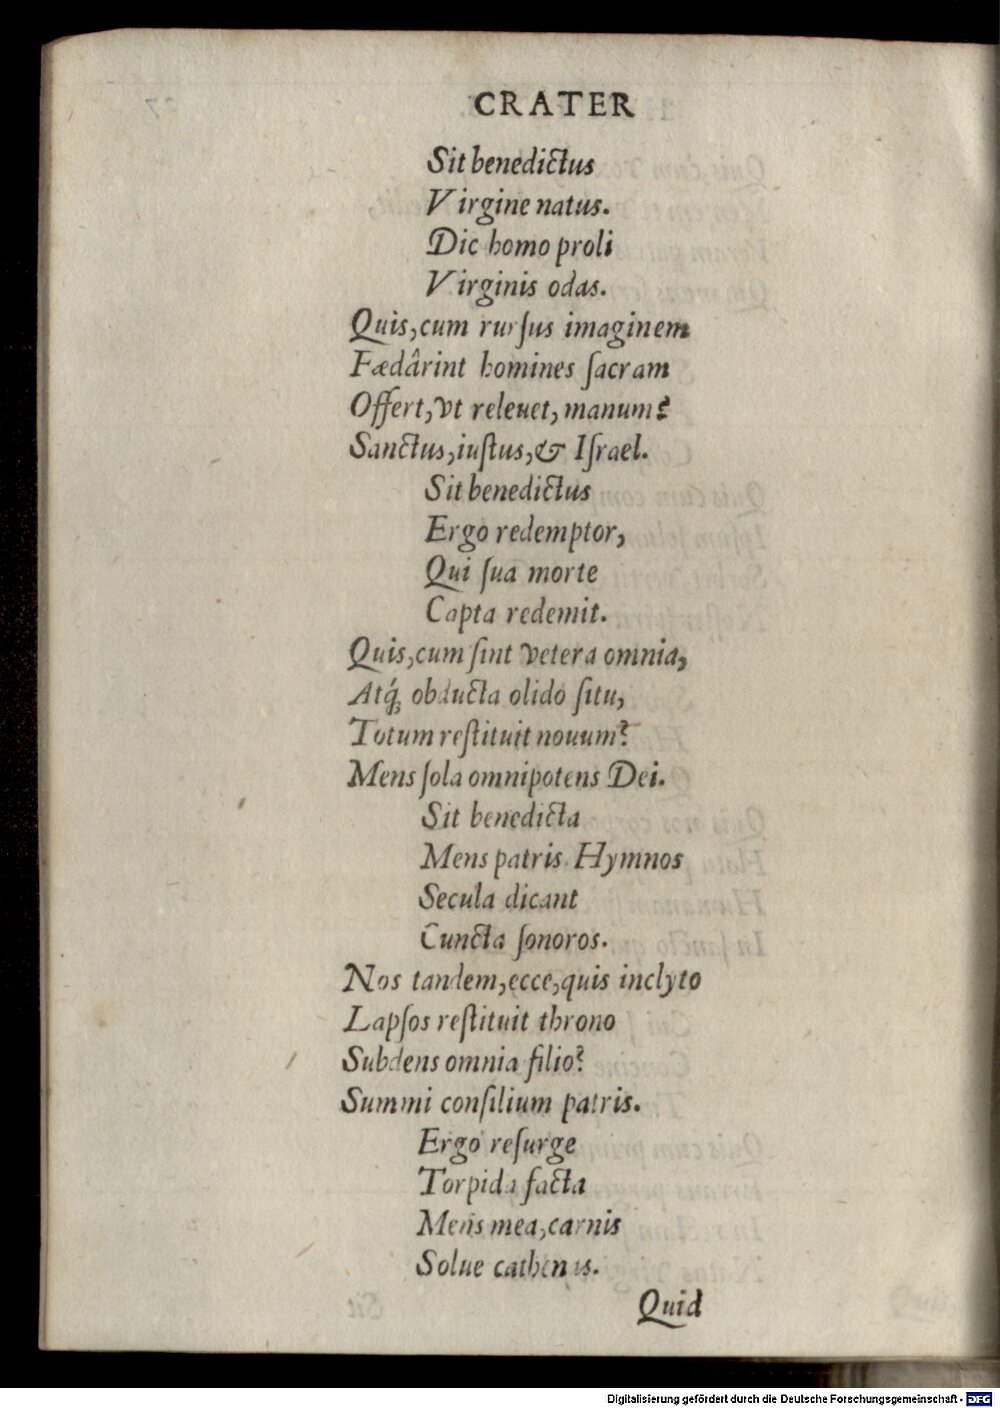 CRATER
Sit benedictus
Virgine natus.
Dic homo proli
Virginis odas.
Quis, cum rurſus imaginem
Fædârint homines ſacram
Offert, vt releuet, manum?
Sanctus, iuſtus, & Iſrael.
Sit benedictus
Ergo redemptor,
Qui ſua morte
Capta redemit.
Quis, cum ſint vetera omnia,
Atq́; obducta olido ſitu,
Totum reſtituit nouum?
Mens ſola omnipotens Dei.
Sit benedicta
Mens patris. Hymnos
Secula dicant
Cuncta ſonoros.
Nos tandem, ecce, quis inclyto
Lapſos reſtituit throno
Subdens omnia filio?
Summi conſilium patris.
Ergo reſurge
Torpida facta
Mens mea, carnis
Solue cathenis.
Quid
Digitalisierung gefördert durch die Deutsche Forschungsgemeinschaft - DFG